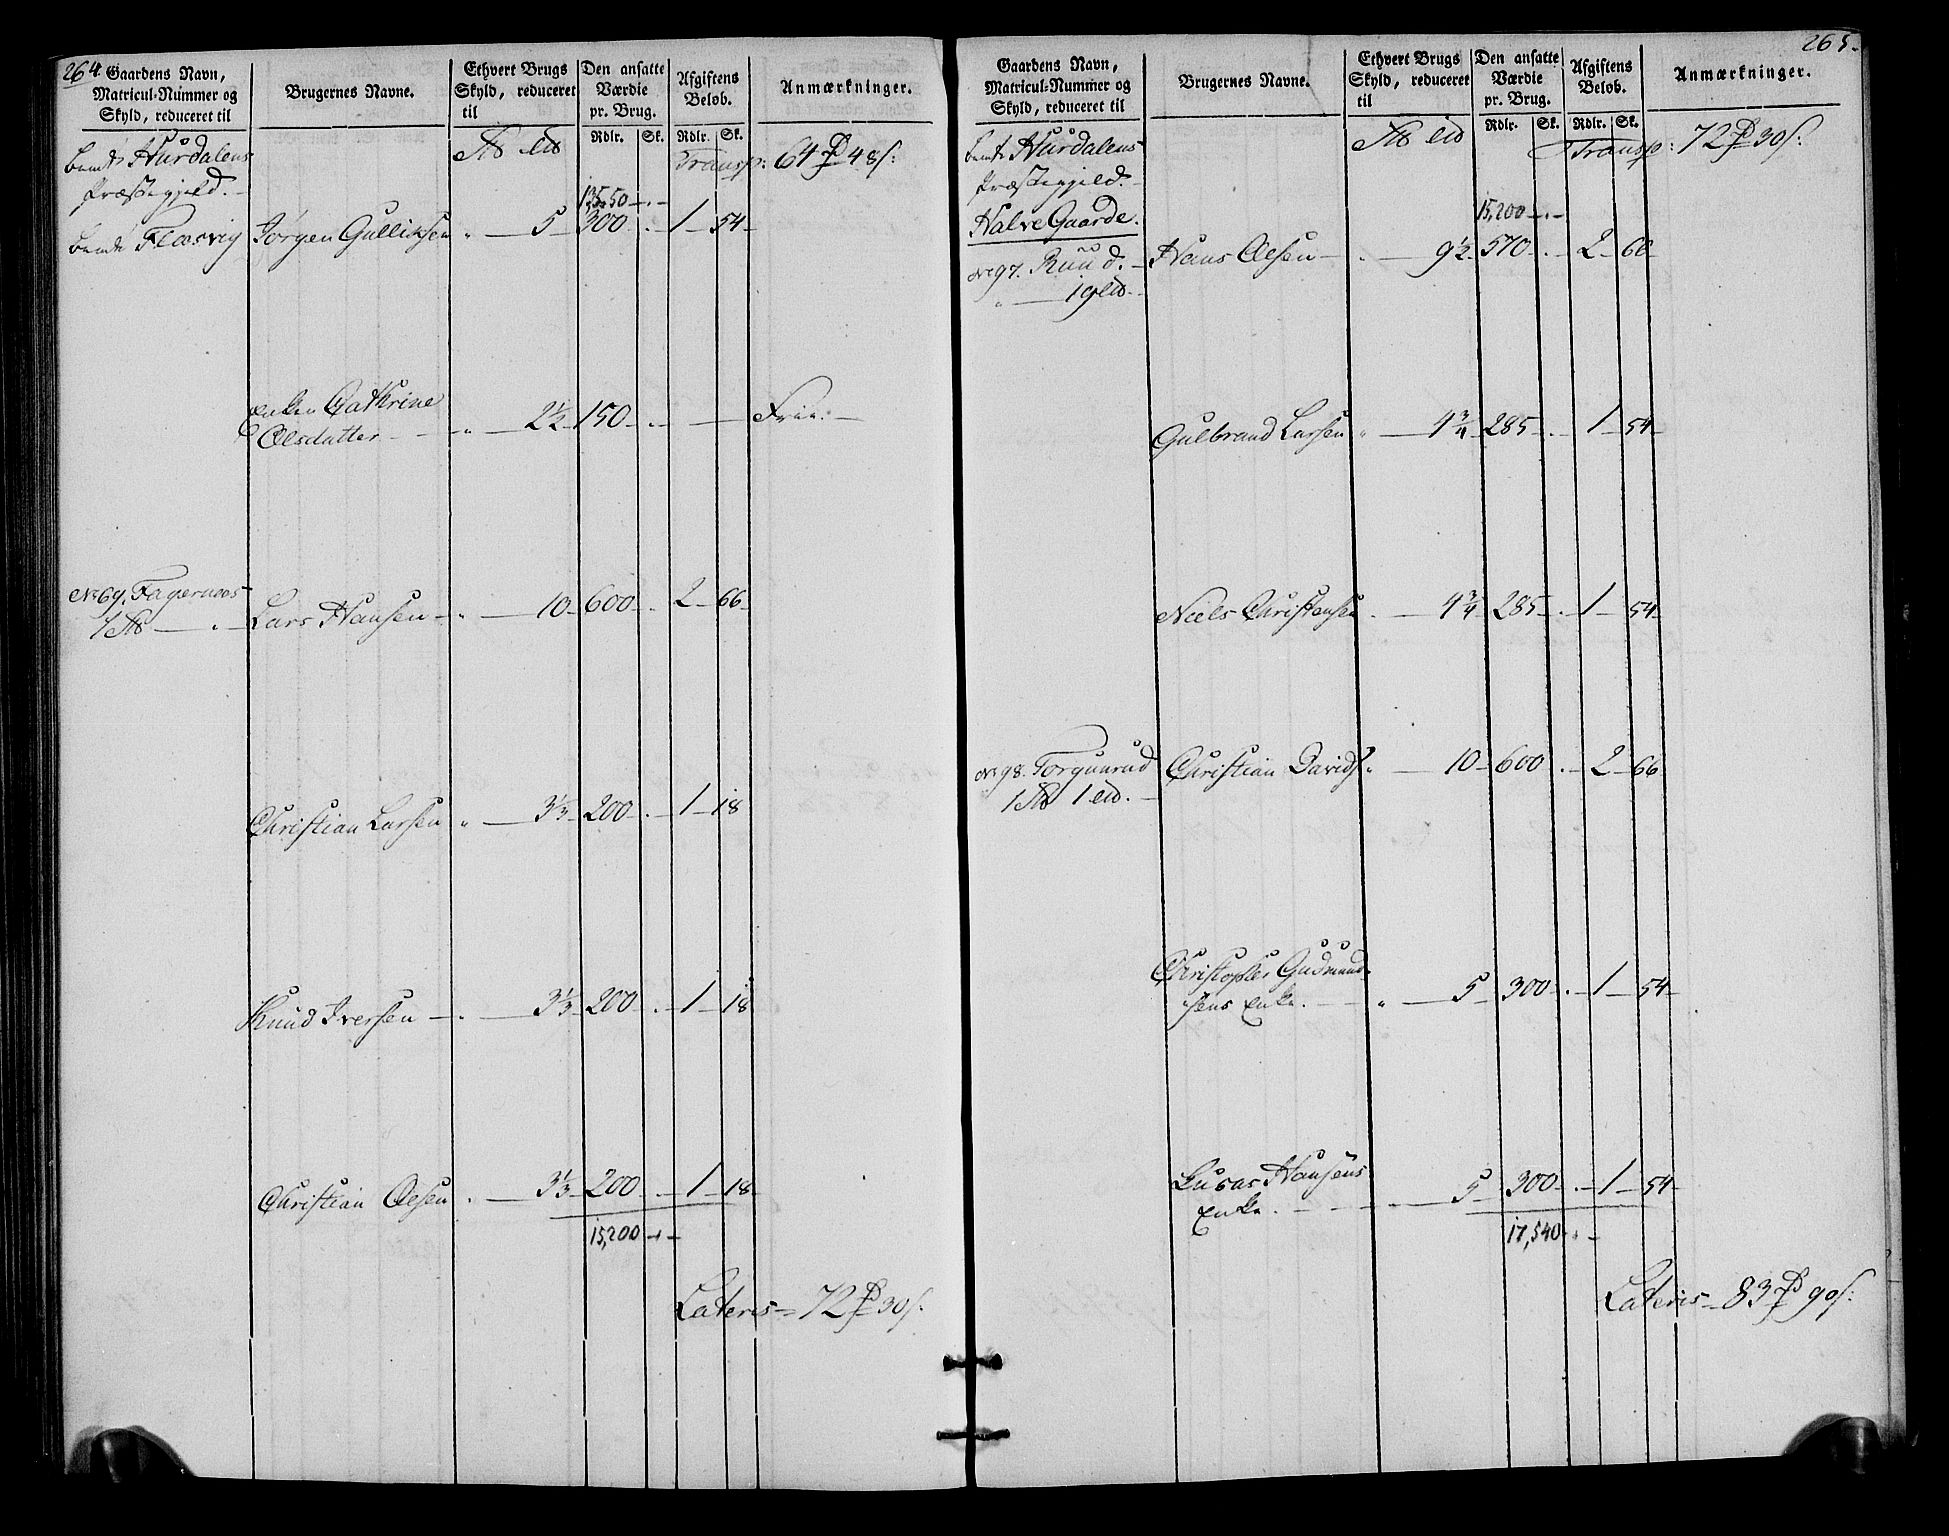 264
Gaardens Navn,
Matricul-Nummer og
Skyld, reduceret til
Brugernes Navne.
Ethvert Brugs
Skyld, reduceret
til
Den ansatte
Værdie
pr. Brug.
Rdlr. Sk.
Afgiftens
Beløb.
Rdlr. Sk.
Anmærkninger.
Hurdalens
Præstegjeld.
Transp: 64 48 s:
13550
Flæsvig Jørgen Gullichsen 5 300 1 54
Enken Cathrine
Olsdatter 2½ 150 Frie.
No 69. Fagernæs Lars Hansen 10 600 2 66
Christian Larsen 3⅓ 200 1 18
Knud Iversen 3⅓ 200 1 18
Christian Olsen 3⅓ 200 1 18
15,200
Lateris 72 30 s.
265.
Gaardens Navn,
Matricul-Nummer og
Skyld, reduceret til
Brugernes Navne.
Ethvert Brugs
Skyld, reduceret
til
Den ansatte
Værdie
pr. Brug.
Rdlr. Sk.
Afgiftens
Beløb.
Rdlr. Sk.
Anmærkninger.
Hurdalens
Præstegjeld.
Transp: 72 30 s.
15,200
Halve Gaarde.
No 97. Ruud. Hans Olsen 9½ 570 2 66
Gulbrand Larsen 4¾ 285 1 54
Niels Christensen 4¾ 285 1 54
No 98. Torgunrud Christian Davids. 10 600 2 66
Christopher Gudmund-
sens Enke. 5 300 1 54
Lucas Hansens
Enke. 5 300 1 54
17,540
Lateris 83 90 s: